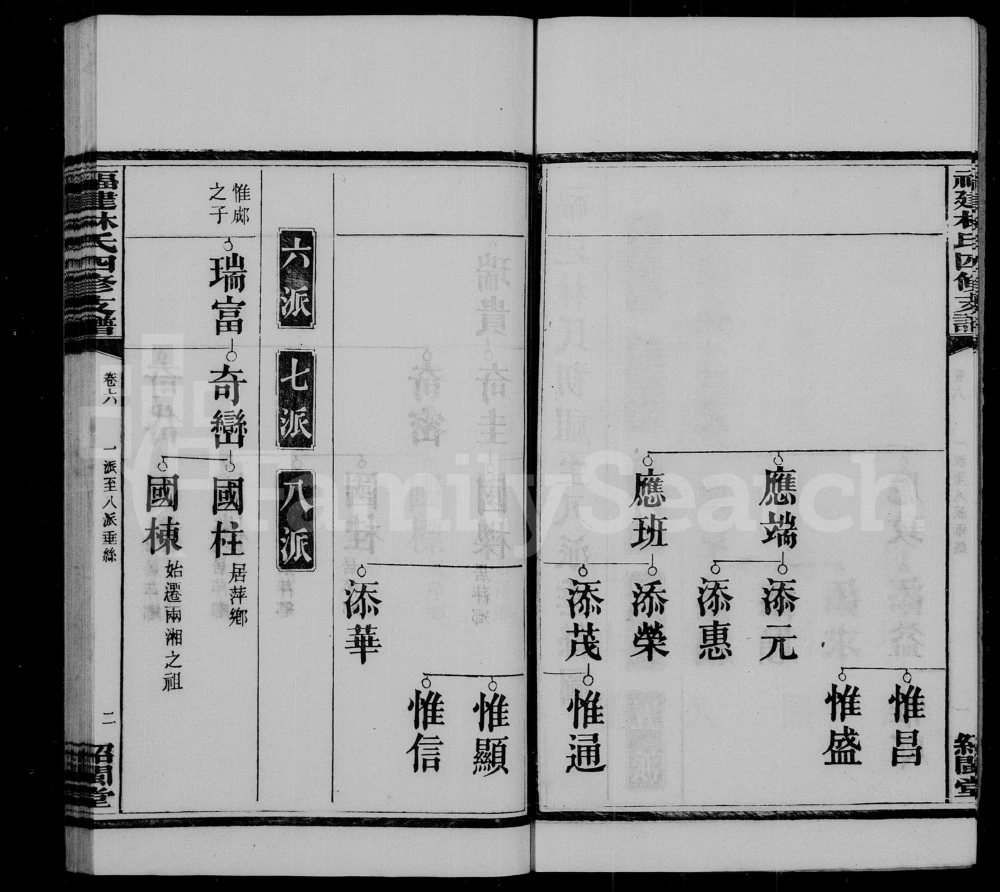 福建林氏四修支譜
紹聞堂
惟昌
惟盛
應端
添元
添惠
應班
添榮
添茂
惟通
惟顯
惟信
添華
六派
七派
八派
惟邴之子
瑞富
奇巒
國柱
居萍鄉
國棟
始遷兩湘之祖
福建林氏四修支譜
卷六
一派至八派垂絲
二
紹聞堂
FamilySearch